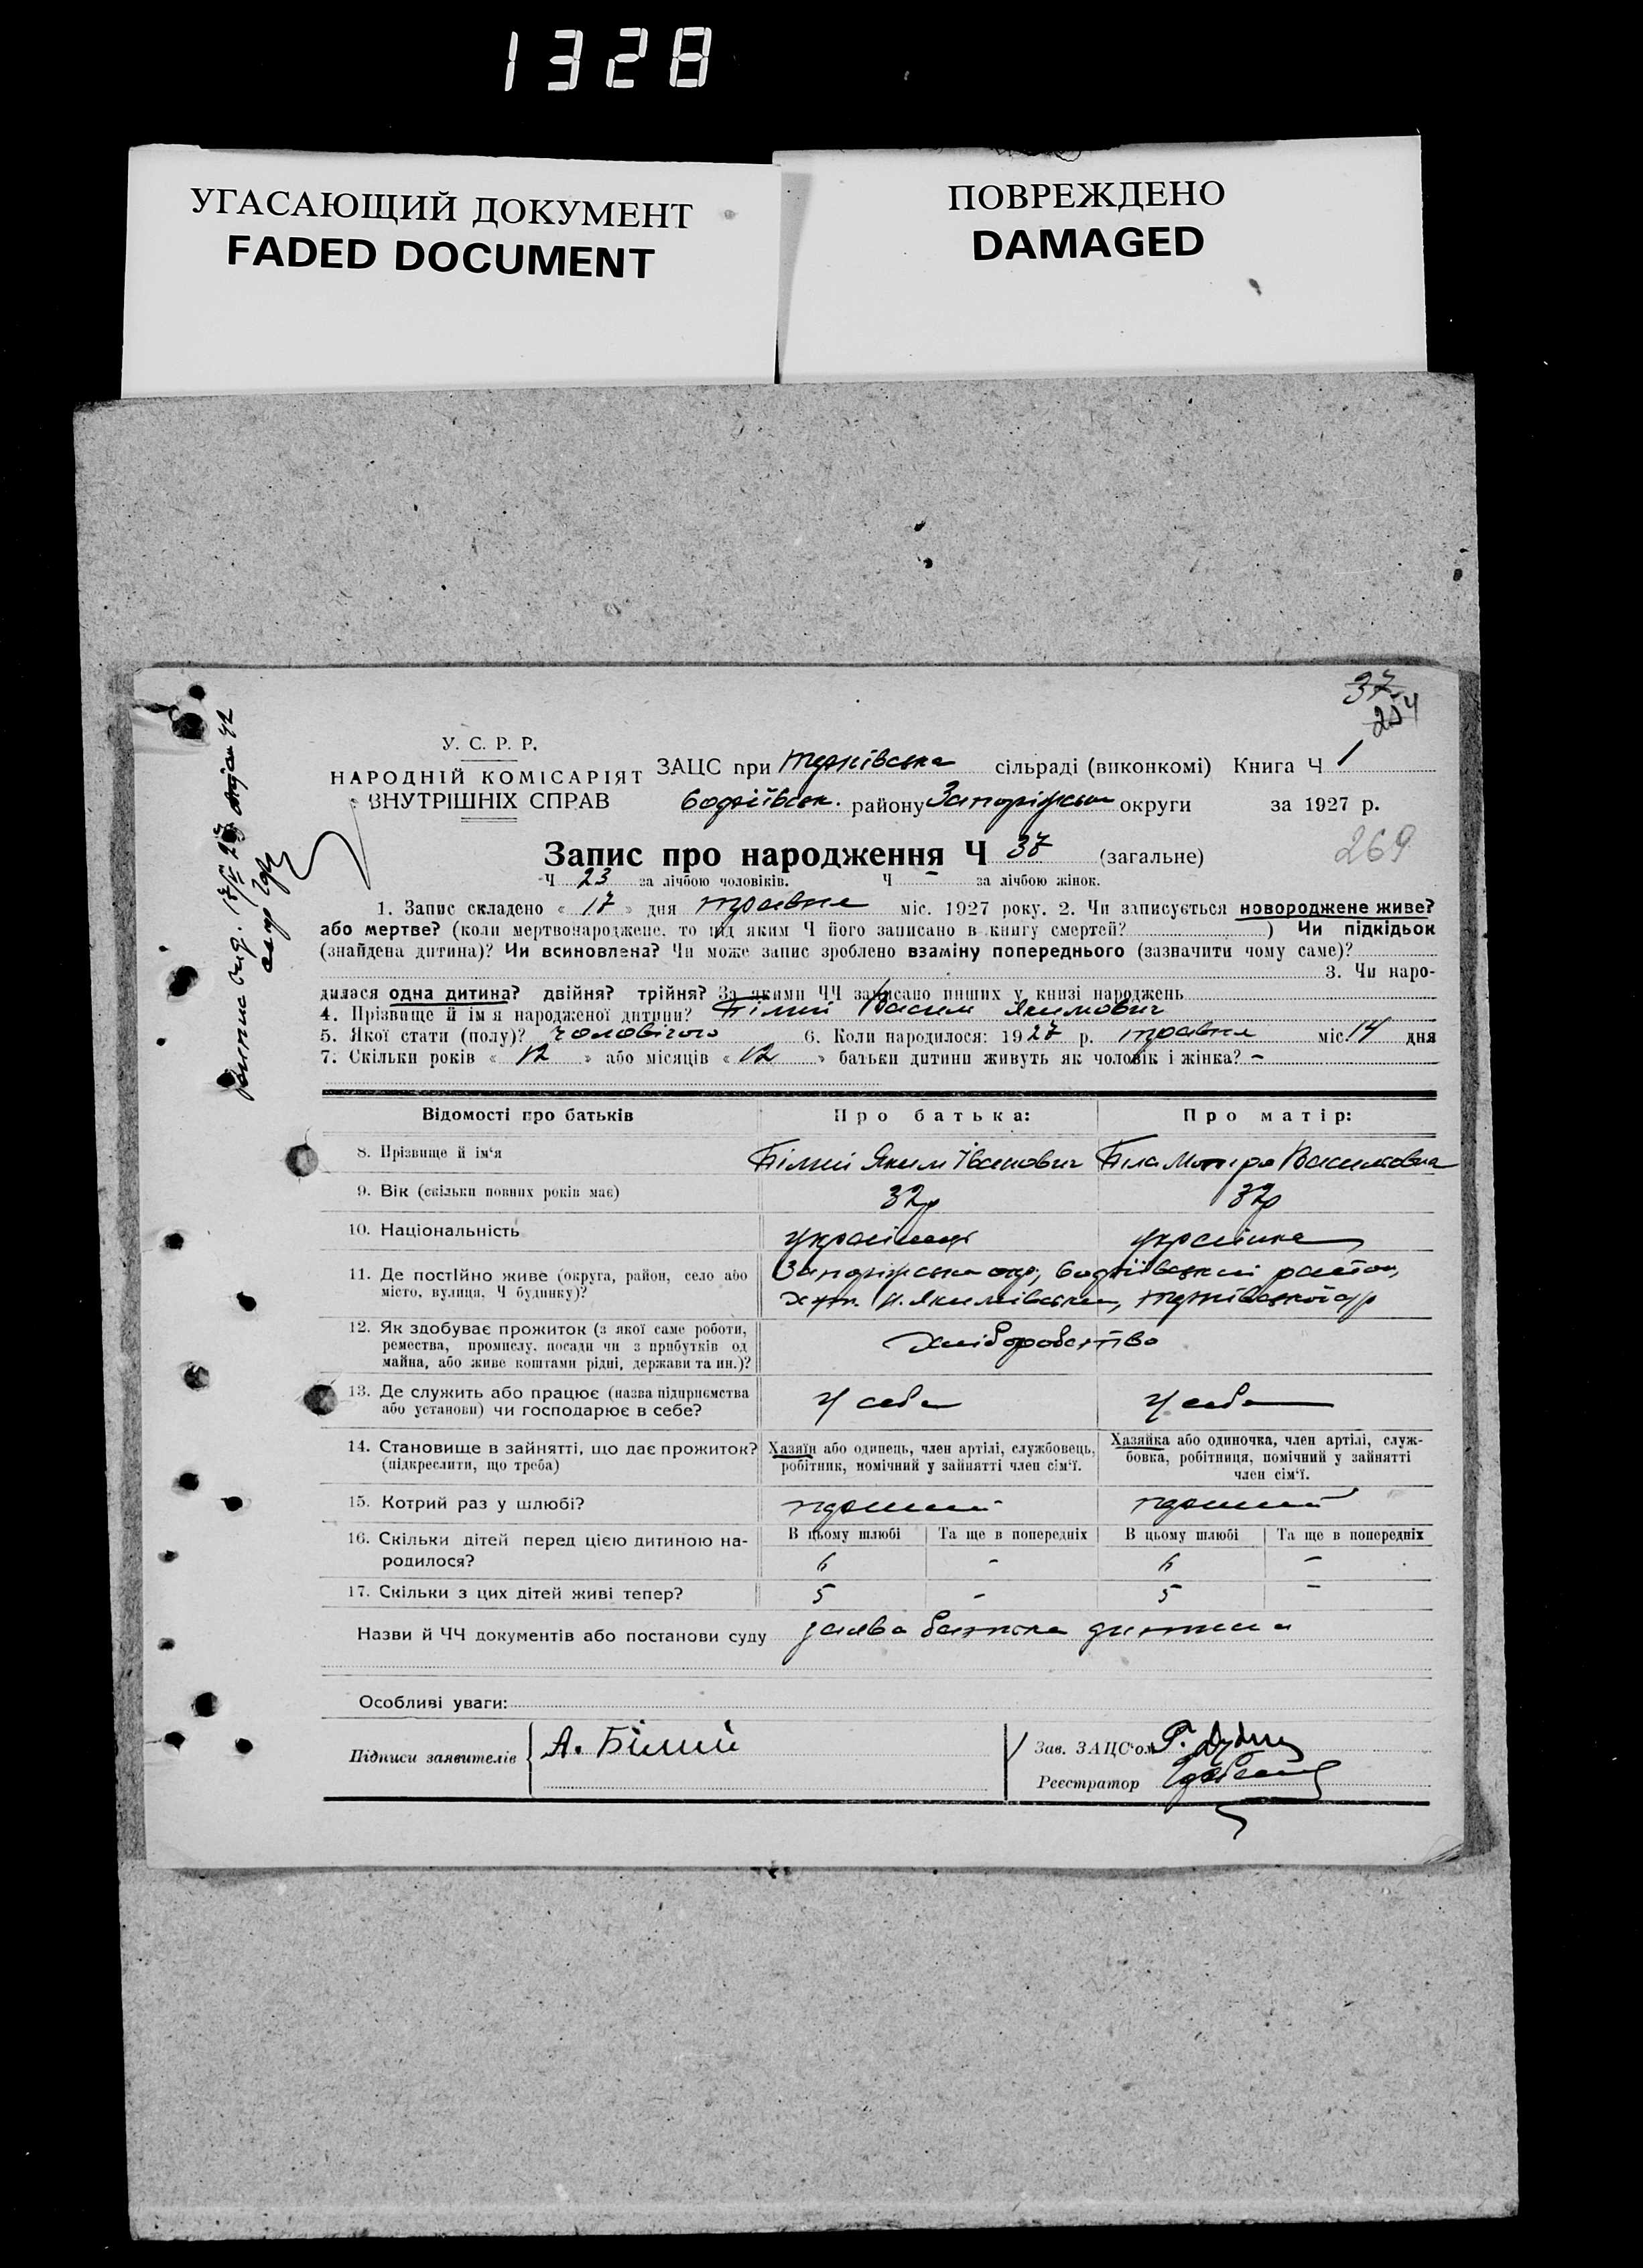 1328
УГАСАЮЩИЙ ДОКУМЕНТ
FADED DOCUMENT
ПОВРЕЖДЕНО
DAMAGED
37
254
У. С. Р. Р.
НАРОДНІЙ КОМІСАРІЯТ
ВНУТРІШНІХ СПРАВ
ЗАЦС при сільраді (виконкомі) Книга Ч 1
району Запоріжськ округи за 1927 р.
Запис про народження Ч 37 (загальне)
269
Ч 23 за лічбою чоловіків. Ч – за лічбою жінок.
1. Запис складено « 17 » дня травня міс. 1927 року. 2. Чи записується новороджене живе?
або мертве? (коли мертвонароджене, то під яким Ч його записано в книгу смертей? ) Чи підкідьок
(знайдена дитина)? Чи всиновлена? Чи може запис зроблено взаміну попереднього (зазначити чому саме)?
3. Чи наро-
дилася одна дитина? двійня? трійня? За якими ЧЧ записано инших у книзі народжень
4. Прізвище й ім'я народженої дитини? Білий Василь Якимович
5. Якої стати (полу)? чоловічого 6. Коли народилося: 1927 р. травня міс. 14 дня
7. Скільки років « 12 » або місяців « 12 » батьки дитини живуть як чоловік і жінка? –
Відомості про батьків
Про батька:
Про матір:
8. Прізвище й ім'я
Білий Яким Іванович
Біла Мотря Василовна
9. Вік (скільки повних років має)
32р
32р
10. Національність
українець
українка
11. Де постійно живе (округа, район, село або
місто, вулиця, Ч будинку)?
Запоріжська окр, район,
12. Як здобуває прожиток (з якої саме роботи,
ремества, промислу, посади чи з прибутків од
майна, або живе коштами рідні, держави та ин.)?
хліборобство
13. Де служить або працює (назва підприємства
або установи) чи господарює в себе?
У себе
У себе
14. Становище в зайнятті, що дає прожиток?
(підкреслити, що треба)
Хазяїн або одинець, член артілі, службовець,
робітник, помічний у зайнятті член сім'ї.
Хазяйка або одиночка, член артілі, служ-
бовка, робітниця, помічний у зайнятті
член сім'ї.
15. Котрий раз у шлюбі?
перший
перший
16. Скільки дітей перед цією дитиною на-
родилося?
В цьому шлюбі Та ще в попередніх В цьому шлюбі Та ще в попередніх
6 – 6 –
17. Скільки з цих дітей живі тепер?
5 – 5 –
Назви й ЧЧ документів або постанови суду заява батька дитини
Особливі уваги:
Підписи заявителів
А. Білий
Зав. ЗАЦС'ом
Реєстратор